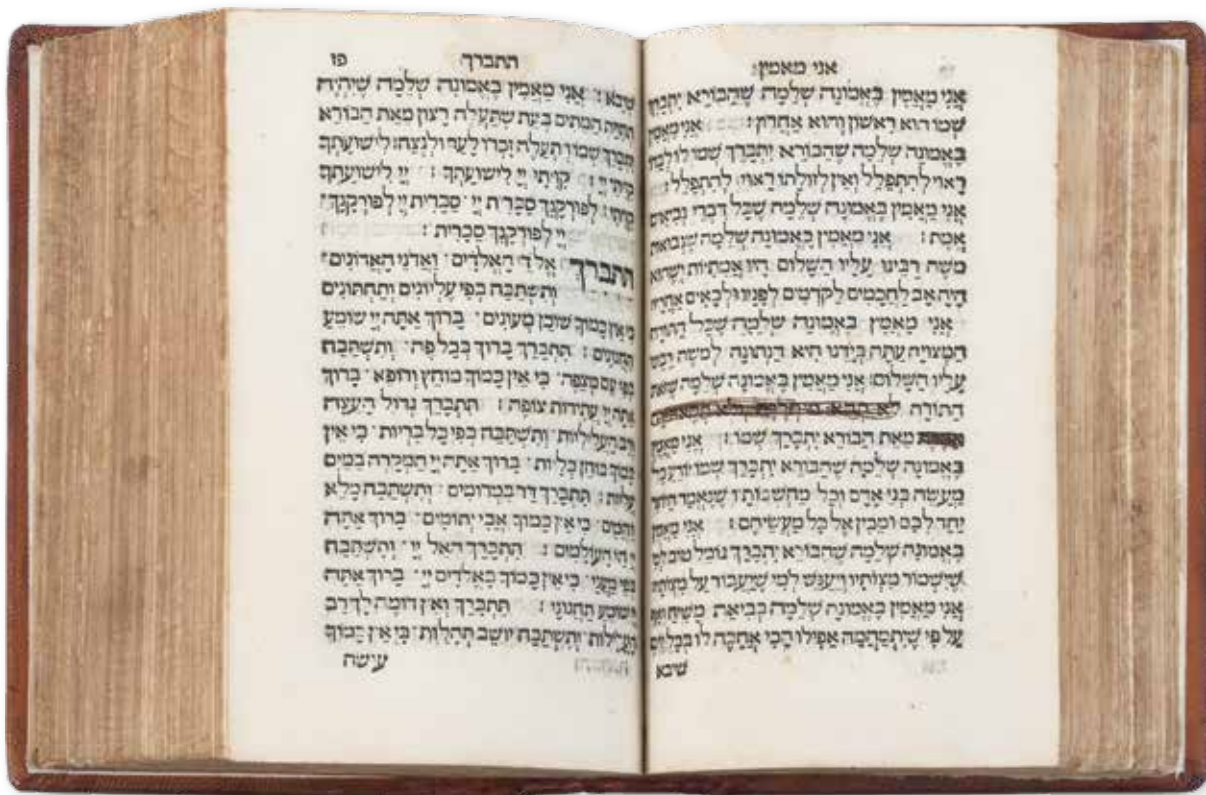 אני מאמין:
אֲנִי מַאֲמִין בֶּאֱמוּנָה שְׁלֵמָה שֶׁהַבּוֹרֵא יִתְבָּרַךְ
שְׁמוֹ הוּא רִאשׁוֹן וְהוּא אַחֲרוֹן: אֲנִי מַאֲמִין
בֶּאֱמוּנָה שְׁלֵמָה שֶׁהַבּוֹרֵא יִתְבָּרַךְ שְׁמוֹ לוֹ לְבַדּוֹ
רָאוּי לְהִתְפַּלֵּל וְאֵין לְזוּלָתוֹ רָאוּי לְהִתְפַּלֵּל:
אֲנִי מַאֲמִין בֶּאֱמוּנָה שְׁלֵמָה שֶׁכָּל דִּבְרֵי נְבִיאִים
אֱמֶת: אֲנִי מַאֲמִין בֶּאֱמוּנָה שְׁלֵמָה שֶׁנְּבוּאַת
מֹשֶׁה רַבֵּינוּ עָלָיו הַשָּׁלוֹם הָיוּ אֲמִתִּיּוֹת וְשֶׁהוּא
הָיָה אָב לַחֲכָמִים לַקּוֹדְמִים לְפָנָיו וְלַבָּאִים אַחֲרָיו
אֲנִי מַאֲמִין בֶּאֱמוּנָה שְׁלֵמָה שֶׁכָּל הַתּוֹרָה
הַמְּצוּיָה עַתָּה בְּיָדֵנוּ הִיא הַנְּתוּנָה לְמֹשֶׁה רַבֵּנוּ
עָלָיו הַשָּׁלוֹם: אֲנִי מַאֲמִין בֶּאֱמוּנָה שְׁלֵמָה שֶׁזֹּאת
הַתּוֹרָה לֹא
מֵאֵת הַבּוֹרֵא יִתְבָּרַךְ שְׁמוֹ: אֲנִי מַאֲמִין
בֶּאֱמוּנָה שְׁלֵמָה שֶׁהַבּוֹרֵא יִתְבָּרַךְ שְׁמוֹ יוֹדֵעַ כָּל
מַעֲשֵׂה בְּנֵי אָדָם וְכָל מַחְשְׁבוֹתָיו שֶׁנֶּאֱמַר הַיּוֹצֵר
יַחַד לִבָּם וּמֵבִין אֶל כָּל מַעֲשֵׂיהֶם: אֲנִי מַאֲמִין
בֶּאֱמוּנָה שְׁלֵמָה שֶׁהַבּוֹרֵא יִתְבָּרַךְ גּוֹמֵל טוֹב לְמִי
שֶׁיִּשְׁמוֹר מִצְוֹתָיו וְיַעֲנֹשׁ לְמִי שֶׁיַּעֲבוֹר עַל מִצְוֹתָיו
אֲנִי מַאֲמִין בֶּאֱמוּנָה שְׁלֵמָה בְּבִיאַת מָשִׁיחַ וְאַף
עַל פִּי שֶׁיִּתְמַהְמַהּ אֲפִילוּ הָכִי אֲחַכֶּה לוֹ בְּכָל יוֹם
שיבא
התברך פו
שֶׁיָּבֹא: אֲנִי מַאֲמִין בֶּאֱמוּנָה שְׁלֵמָה שֶׁיִּהְיֶה
תְּחִיַּת הַמֵּתִים בְּעֵת שֶׁתַּעֲלֶה רָצוֹן מֵאֵת הַבּוֹרֵא
יִתְבָּרַךְ שְׁמוֹ וְתִעֲלֶה זִכְרוֹ לָעַד וּלְנֶצַח: לִישׁוּעָתְךָ
קִוִּיתִי יְיָ: קִוִּיתִי יְיָ לִישׁוּעָתְךָ: יְיָ לִישׁוּעָתְךָ
קִוִּיתִי: לְפוּרְקָנָךְ סַבָּרִית יְיָ סַבָּרִית יְיָ לְפוּרְקָנָךְ
יְיָ לְפוּרְקָנָךְ סַבָּרִית:
תִּתְבָּרַךְ אֱלֹדֵי הָאֱלֹדִים וַאֲדוֹנֵי הָאֲדוֹנִים
וְתִשְׁתַּבַּח בְּפִי עֶלְיוֹנִים וְתַחְתּוֹנִים
כִּי אֵין כָּמוֹךָ שׁוֹכֵן מְעוֹנִים בָּרוּךְ אַתָּה יְיָ שׁוֹמֵעַ
תַּחֲנוּנִים: תִּתְבָּרַךְ בָּרוּךְ בְּכָל פֶּה וְתִשְׁתַּבַּח
בְּפִי עַם מְצַפֶּה כִּי אֵין כָּמוֹךָ מוֹחֵץ וְרוֹפֵא בָּרוּךְ
אַתָּה יְיָ עֲתִידוֹת צוֹפֶה: תִּתְבָּרַךְ גְּדוֹל הָעֵצָה
וְרַב הָעֲלִילִיּוֹת וְתִשְׁתַּבַּח בְּפִי כָל בְּרִיּוֹת כִּי אֵין
כָּמוֹךָ בּוֹחֵן כְּלָיוֹת בָּרוּךְ אַתָּה יְיָ הַמְקָרֶה בַמַּיִם
עֲלִיּוֹת: תִּתְבָּרַךְ דָּר בִּמְרוֹמִים וְתִשְׁתַּבַּח
כִּי אֵין כָּמוֹךָ אֲבִי יְתוֹמִים בָּרוּךְ אַתָּה
יְיָ חֵי הָעוֹלָמִים: תִּתְבָּרַךְ הָאֵל יְיָ וְתִשְׁתַּבַּח
כִּי אֵין כָּמוֹךָ בָּאֱלֹדִים יְיָ בָּרוּךְ אַתָּה
יְיָ שׁוֹמֵעַ תַּחֲנוּנָי: תִּתְבָּרַךְ וְאֵין דּוֹמֶה לָךְ רַב
הָעֲלִילוֹת וְתִשְׁתַּבַּח יוֹשֵׁב תְּהִלּוֹת כִּי אֵין כָּמוֹךָ
עושה